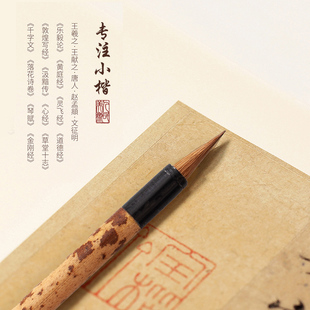 专注小楷
王羲之·王献之·唐人·赵孟頫·文征明
《乐毅论》《黄庭经》《灵飞经》《道德经》
《敦煌写经》《汲黯传》《心经》《草堂十志》
《千字文》《落花诗卷》《琴赋》《金刚经》